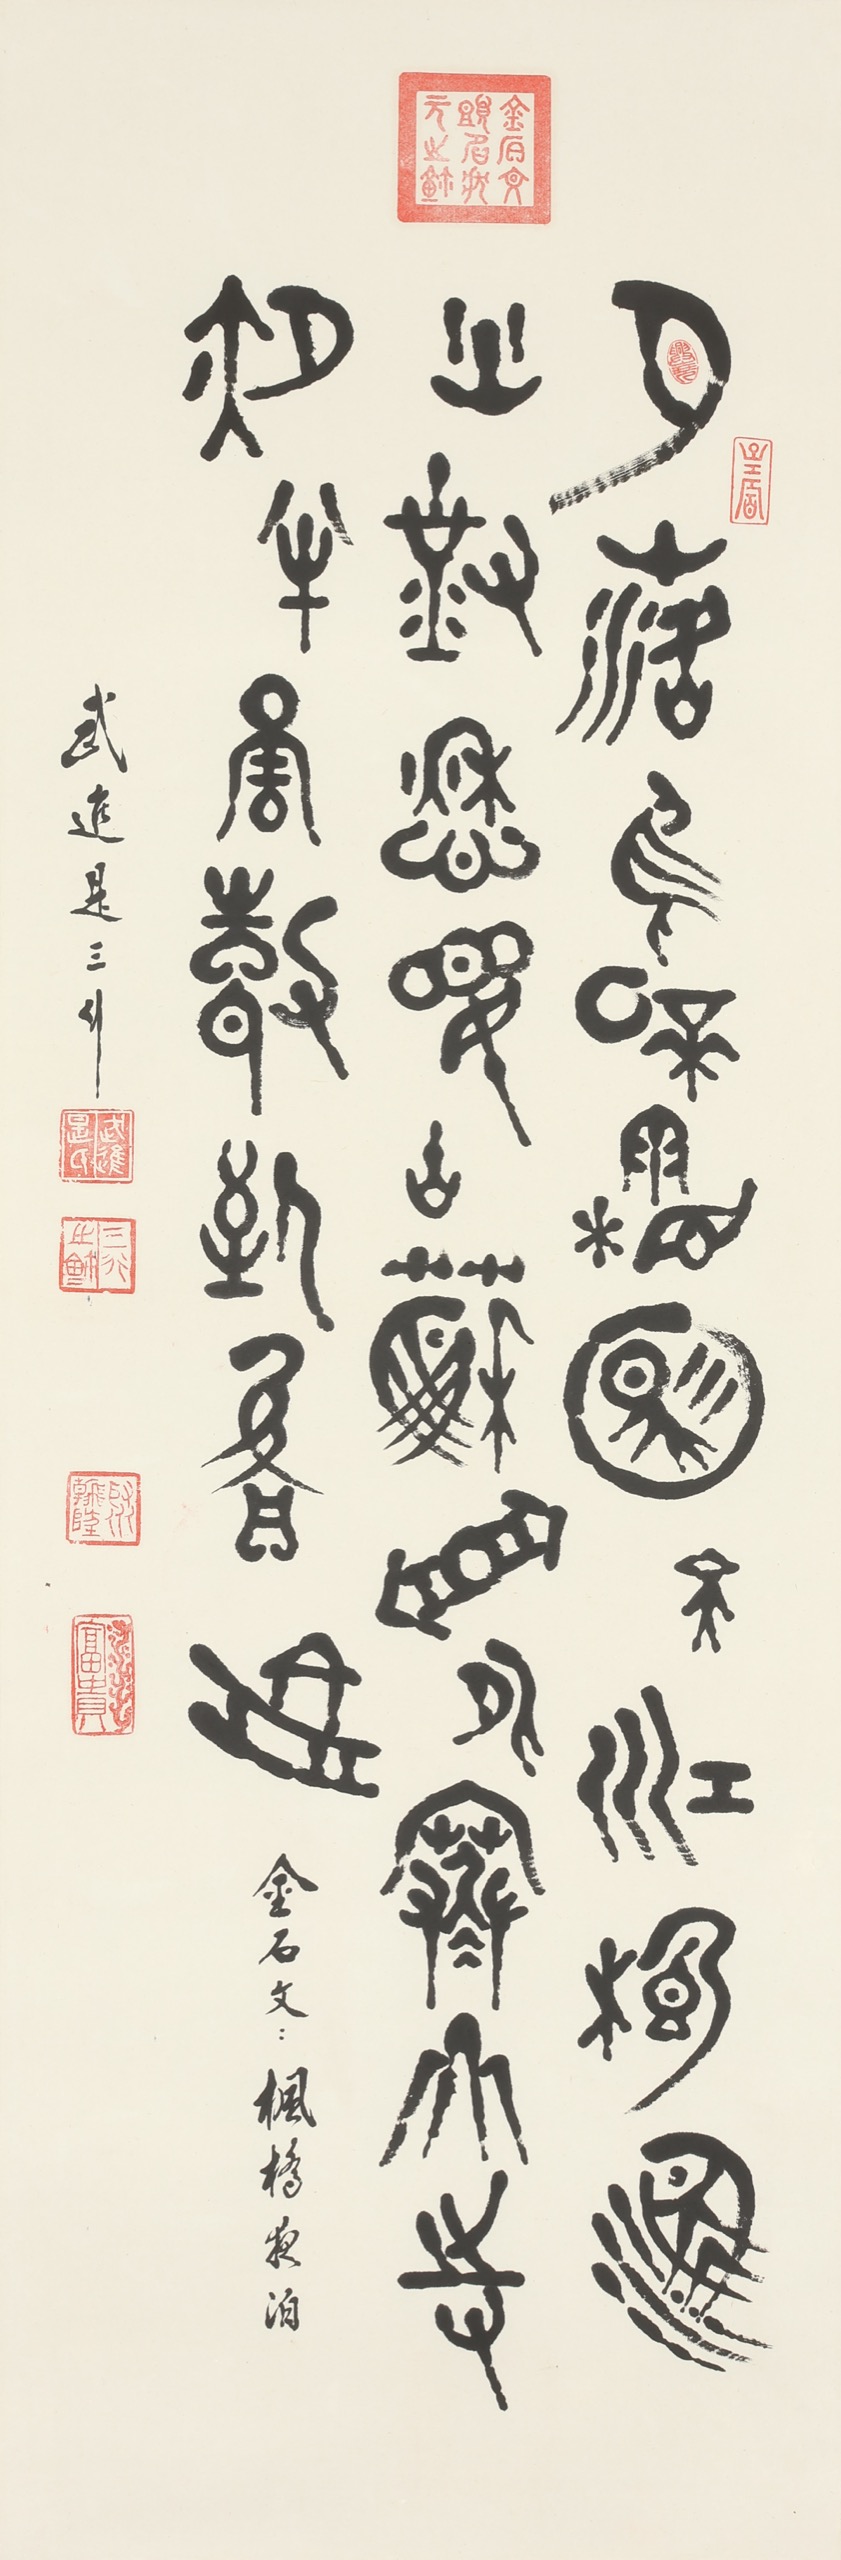 月落烏啼霜滿天江楓漁
火對愁眠姑蘇城外寒山寺
夜半鐘聲到客船
金石文：楓橋夜泊
武進是三
武進是氏
富貴